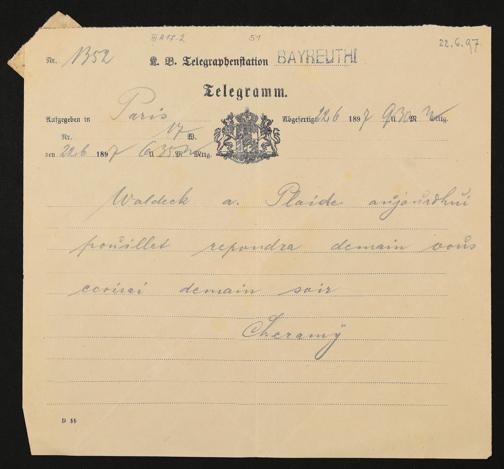 III A 17-2 51 22.6.97.
Nr. 1352 K. B. Telegraphenstation BAYREUTH
Telegramm.
Aufgegeben in Paris Abgefertigt 22 6 1897 9 U. 30 M. Mttg.
Nr. 17 W.
den 22 6 1897 6 U. 35 M. Mttg.
Waldeck a. Plaide aujourdhui
pouillet repondra demain vous
ecrirai demain soir
Cheramÿ